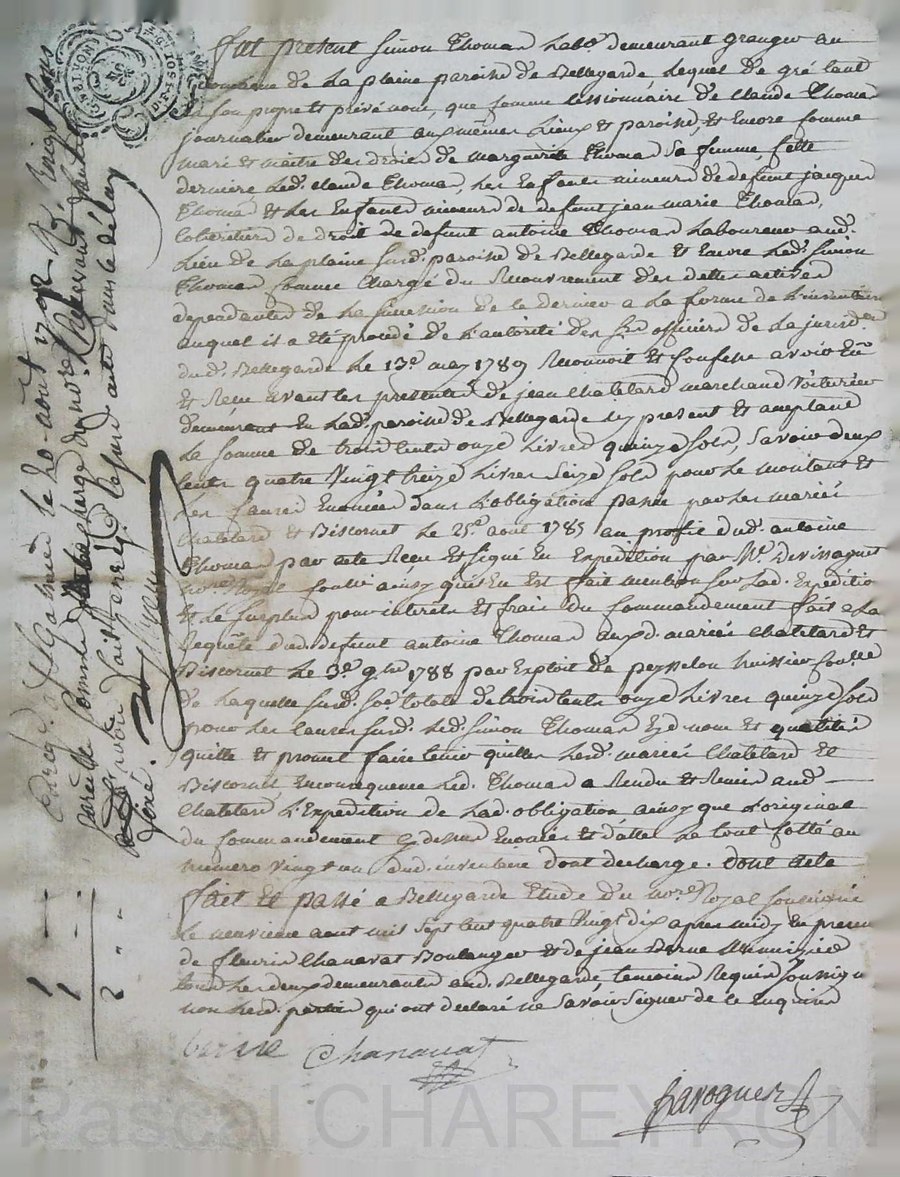 fut présent Simon Thomas lab.r demeurant granger au
domaine de La plaine paroisse de Bellegarde, Lequel de gré tant
En son propre et privé nom, que comme cessionnaire de claude Thomas
journalier demeurant aux mêmes Lieux et paroisse, et Encore comme
mari et maitre des droits de marguerite Thomas Sa femme, cette
derniere Led. claude Thomas, Les Enfants mineurs de defunt jacques
Thomas et Les Enfants mineurs de defunt jean marie Thomas,
cohéritiers de droit de defunt antoine Thomas Laboureur aud.
Lieu de La plaine sus d. paroisse de Bellegarde et Encore Led. Simon
Thomas comme Chargé du Recouvrement des dettes actives
dependantes de La succession de ce dernier a La forme de L'inventaire
auquel il a été procédé de L'autorité des Srs officiers de La jurid.on
dud. Bellegarde Le 13e may 1789 Reconnoit et Confesse avoir Eu
et Reçu avant Les presentes de jean Chatelard marchand Voiturier
demeurant En Lad. paroisse de Bellegarde icy present et acceptant
La somme de trois cents onze Livres quinze sols, Savoir deux
cents quatre Vingt treize Livres Seize sols pour Le montant et
Les causes Enoncées dans L'obligation passée par Les mariés
Chatelard et Discornet Le 25e aout 1785 au profit dud. antoine
Thomas par acte Reçu et signé En Expedition par Me
no.re Royal ainsy qu'il En Est fait mention sur Lad. Expedition
et Le surplus pour interets et frais du Commandement fait a La
Requête dud. defunt antoine Thomas auxd. mariés Chatelard et
Discornet Le 3e 9bre 1788 par Exploit de peysselon huissier
de Laquelle susd. so.e totale de trois cents onze Livres quinze sols
pour Les causes susd. Led. Simon Thomas Ezd. nom et qualités
quitte et promet faire tenir quittes Lesd. mariés Chatelard et
Discornet, Enconsequence Led. Thomas a Rendu et Remis aud.
Chatelard L'Expedition de Lad. obligation ainsy que L'original
du Commandement cy dessus Enoncés et dattés Le tout cotté au
numero vingt un dud. inventaire dont decharge. Dont acte
fait et passé a Bellegarde Etude du no.re Royal soussigné
Le neuvieme aout mil sept cent quatre vingt dix apres midy En presence
de fleury Chanavat Boulanger et de jean Verne
tous Les deux demeurants aud. Bellegarde, temoins Requis soussignés
non Lesd. parties qui ont declaré ne Savoir Signer de ce Enquises
verne Chanavat
Enreg. a St Galmier le 20 aout 1790 R. vingt sous
1
1
2
Pascal CHAREYRON